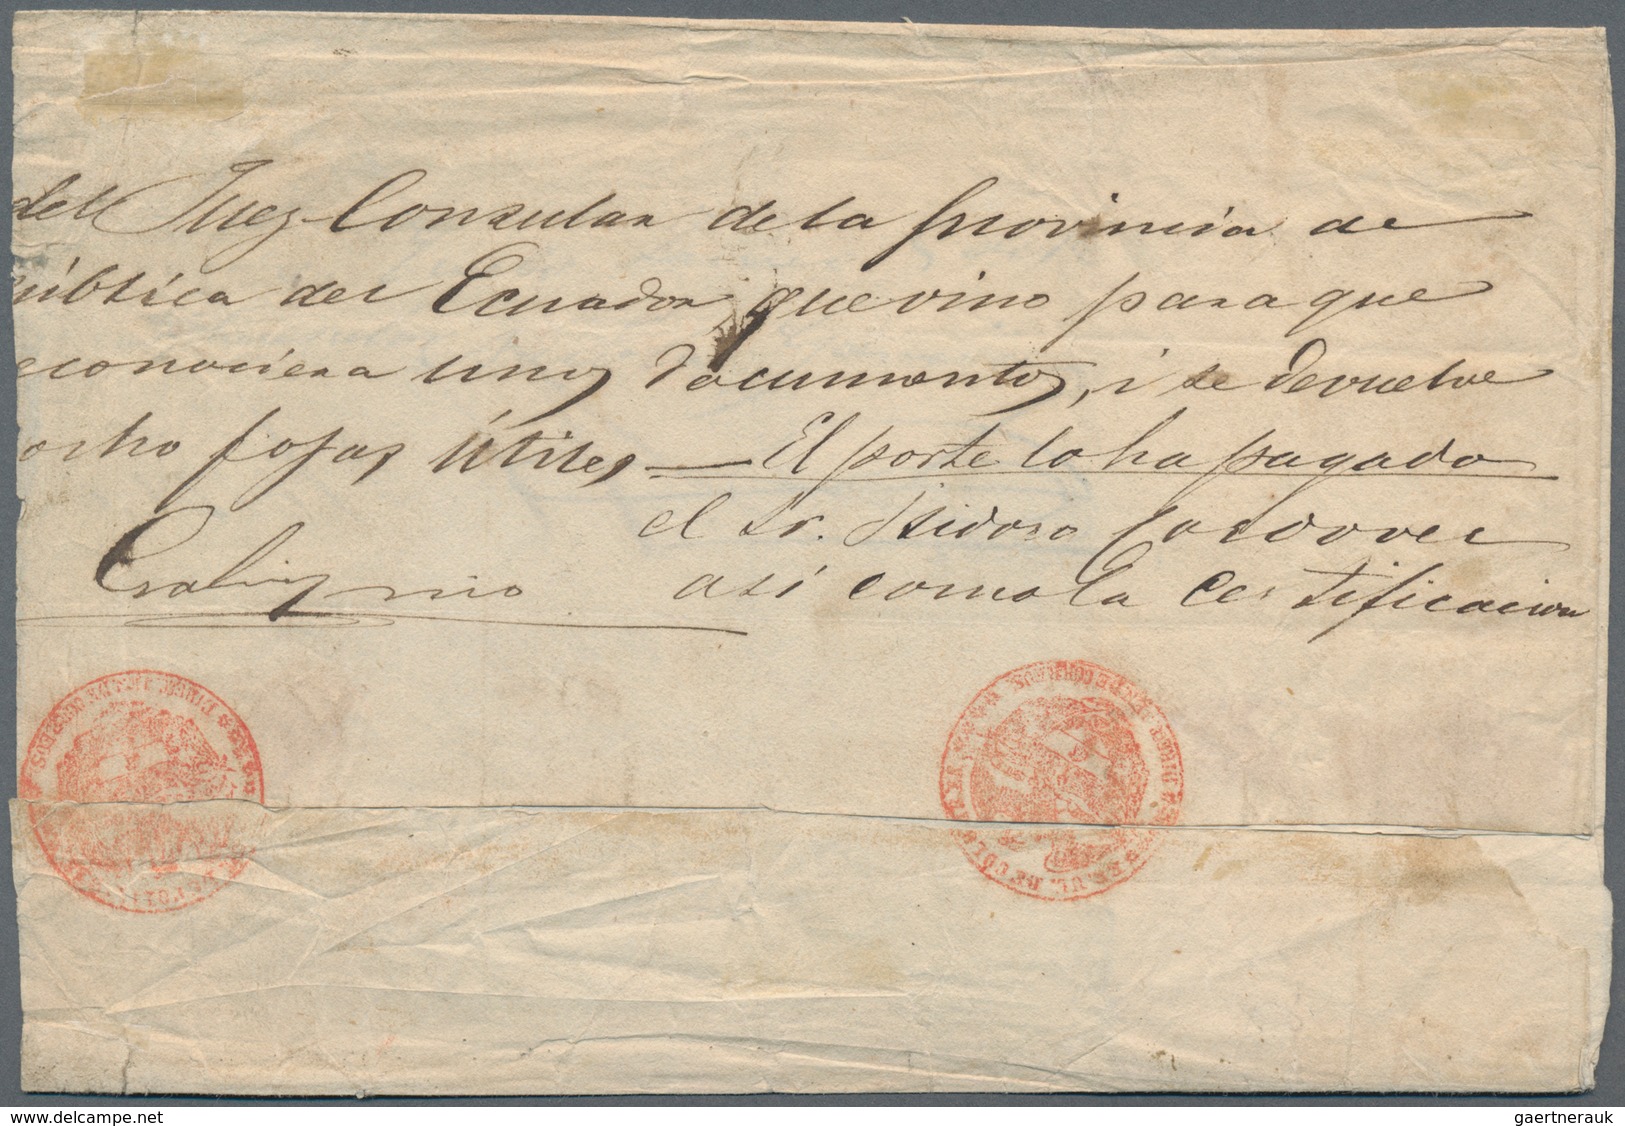 del Juez Consular de la provincia de
ública del Ecuador, que vino para que
econociera unos documentos, i se devuelve
ocho fojas útiles — El porte lo ha pagado
el Sr. Isidoro Cordovez
así como la Certificacion
delcampe.net
gaertnerauk